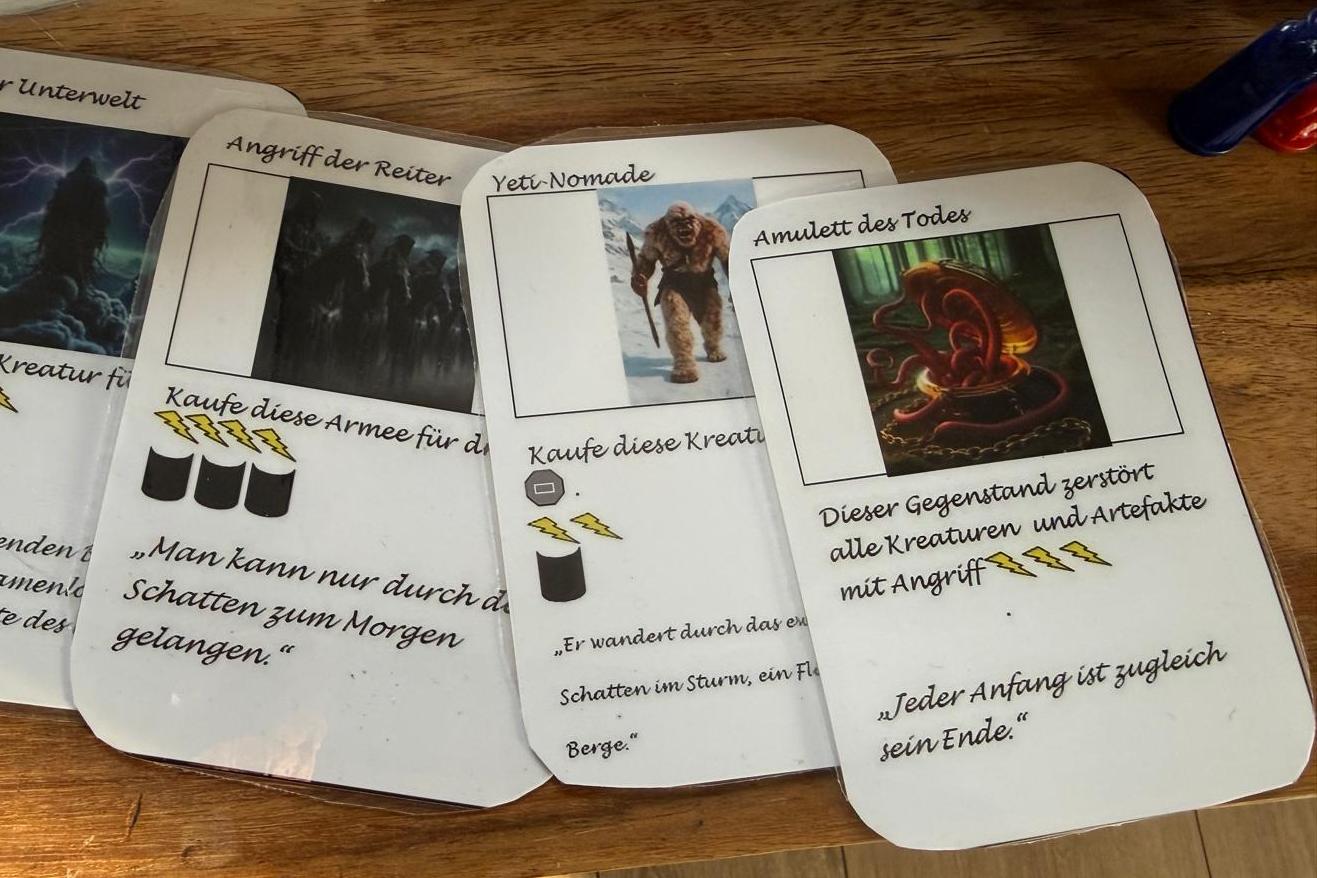 Unterwelt
Kreatur
des
Angriff der Reiter
Kaufe diese Armee für
„Man kann nur durch
Schatten zum Morgen
gelangen.“
Yeti-Nomade
Kaufe diese
„Er wandert durch das
Schatten im Sturm, ein
Berge.“
Amulett des Todes
Dieser Gegenstand zerstört
alle Kreaturen und Artefakte
mit Angriff
.
„Jeder Anfang ist zugleich
sein Ende.“